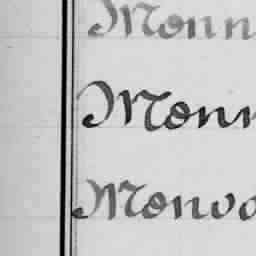 Monn
Monn
Monvo